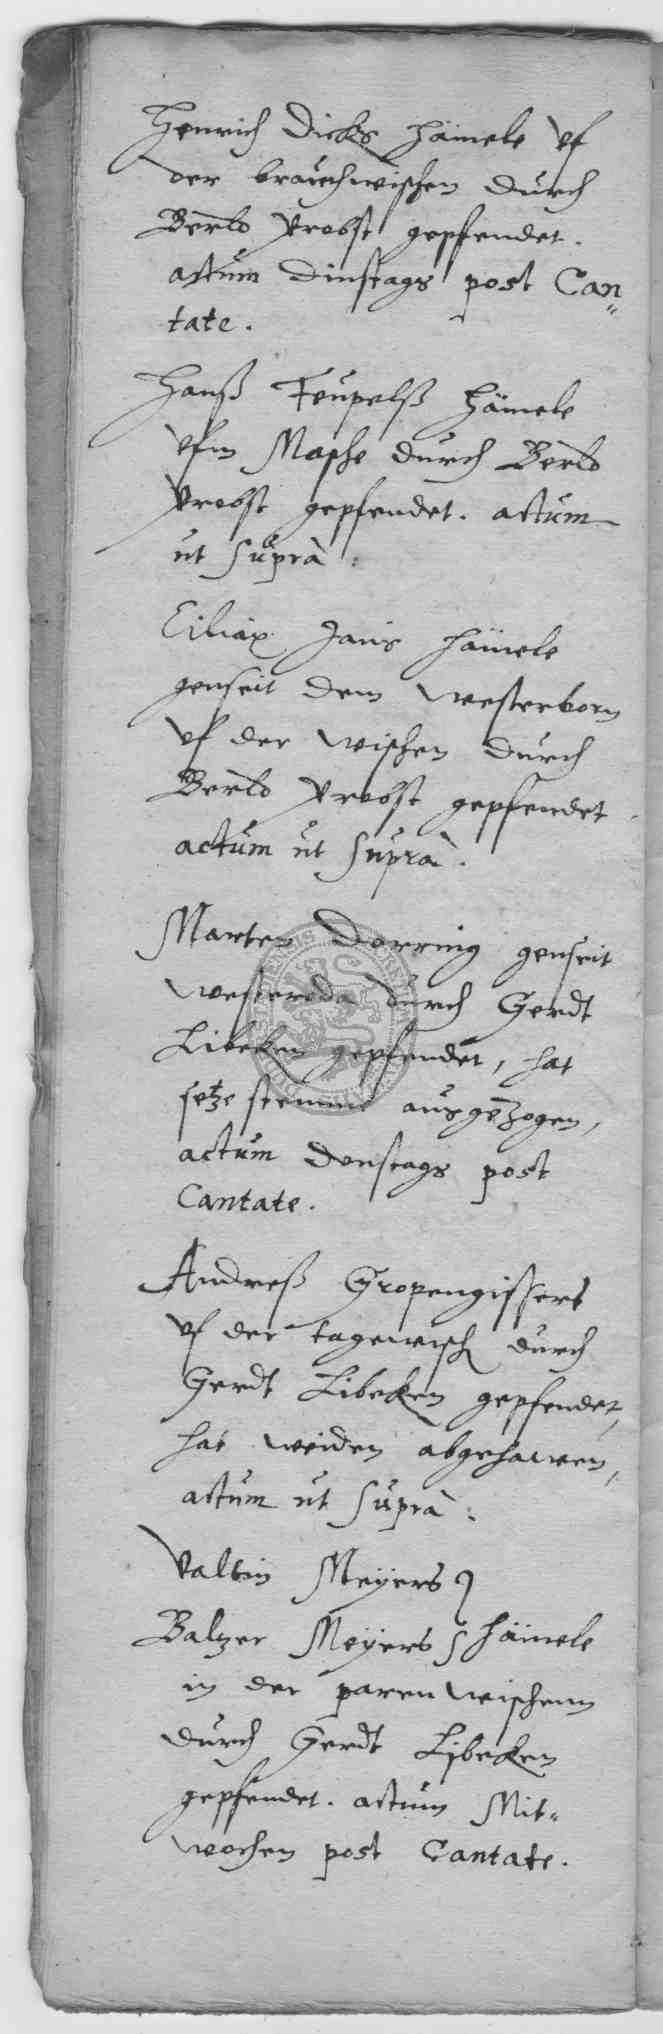 Henrich Dicks hämele uf
der brauchwischen durch
Berld Probst gepfendet.
actum Dinstags post Can„
tate.
Hanß Teupelß hämele
ufm Masche durch Berld
Probst gepfendet. actum
ut suprà:
Ciliax Jans hämele
genseit dem Westerborn
uf der wischen durch
Berld Probst gepfendet
actum ut suprà.
Marten Dorring genseit
westerode durch Gerdt
Libeken gepfendet, hat
setze stemme ausgezogen,
actum Donstags post
Cantate.
Andreß Gropengissers
uf der tagewisch durch
Gerdt Libeken gepfendet,
hat weiden abgehawen,
actum ut suprà:
Valtin Meyers
Baltzer Meyers hämele
in der parenwischenn
durch Gerdt Libeken
gepfendet. actum Mit„
wochen post Cantate.